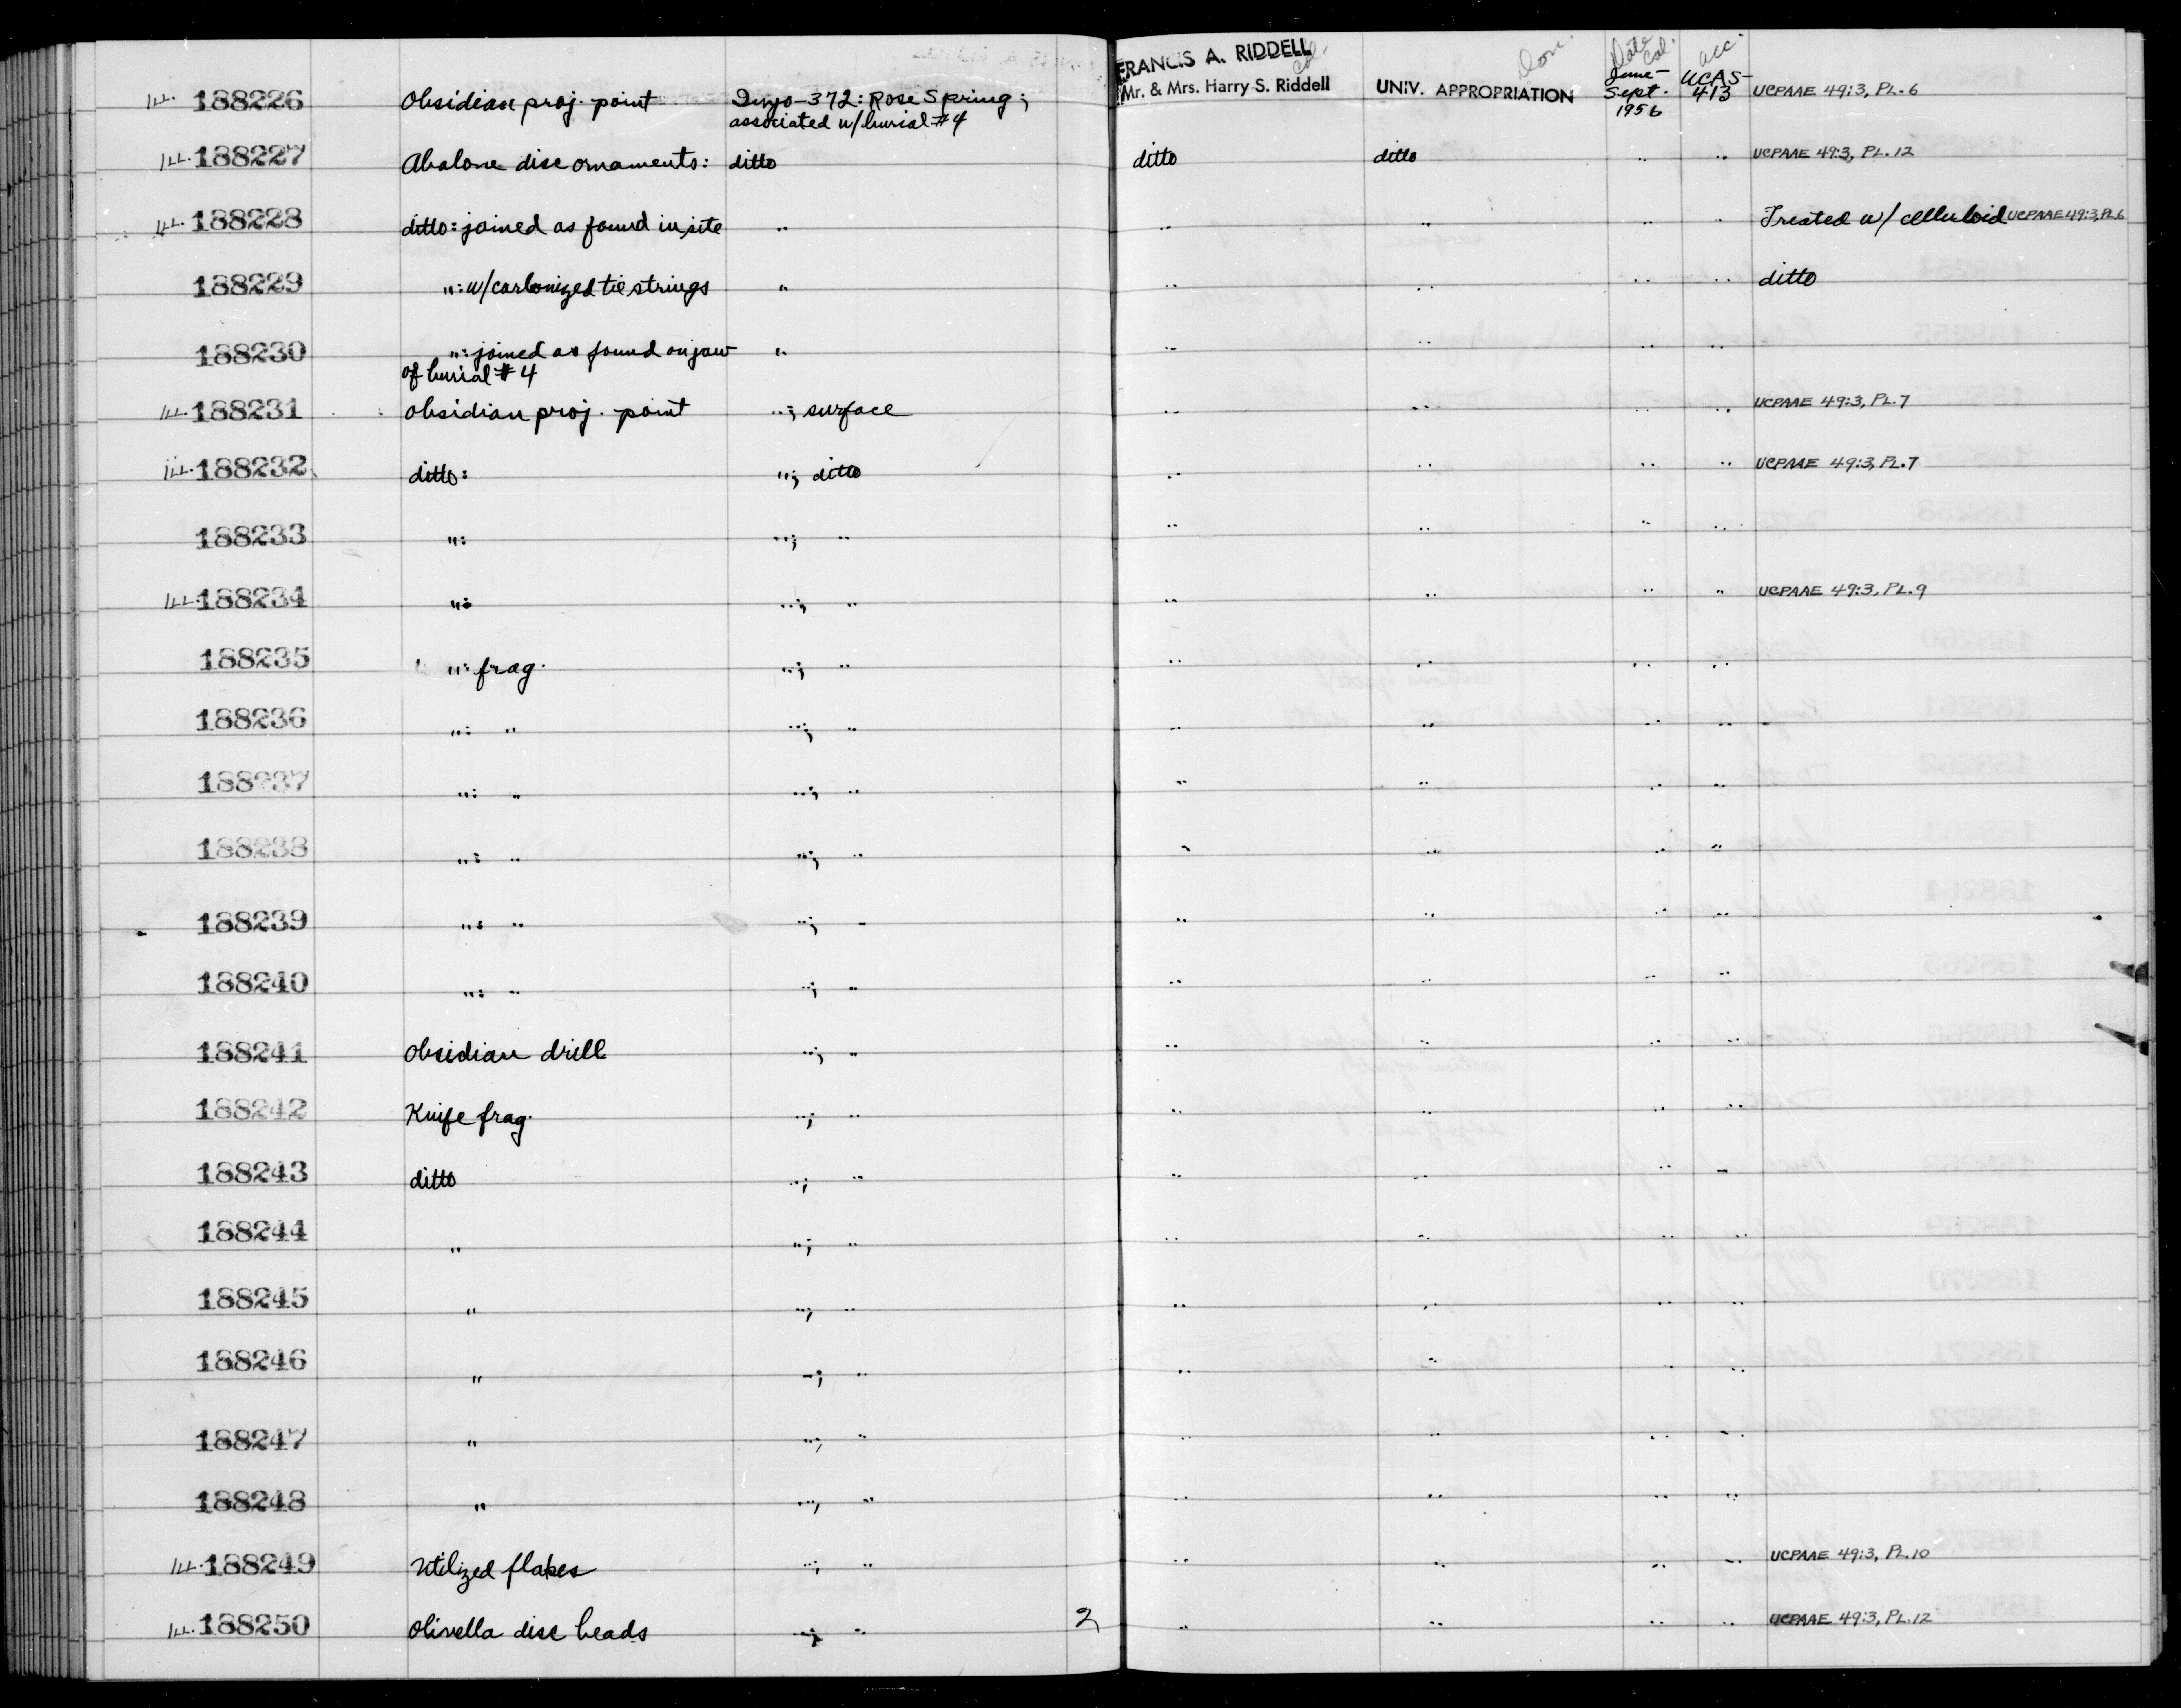 Col. Don. Date Col. acc.
FRANCIS A. RIDDELL
Ill. 188226 Obsidian proj. point Inyo-372: Rose Spring; associated w/burial #4 Mr. & Mrs. Harry S. Riddell UNIV. APPROPRIATION June- Sept. 1956 UCAS- 413 UCPAAE 49:3, PL.6
Ill. 188227 Abalone disc ornaments: ditto ditto ditto " " UCPAAE 49:3, PL.12
Ill. 188228 ditto: joined as found in site " " " " " Treated w/ celluloid UCPAAE 49:3, PL.6
188229 ": w/carbonized tie strings " " " " " ditto
188230 ": joined as found on jaw " " " " "
of burial #4
Ill. 188231 Obsidian proj. point "; surface " " " " UCPAAE 49:3, PL.7
Ill. 188232 ditto: "; ditto " " " " UCPAAE 49:3, PL.7
188233 ": "; " " " " "
Ill. 188234 ": "; " " " " " UCPAAE 49:3, PL.9
188235 ": frag. "; " " " " "
188236 ": " "; " " " " "
188237 ": " "; " " " " "
188238 ": " "; " " " " "
188239 ": " "; " " " " "
188240 ": " "; " " " " "
188241 Obsidian drill "; " " " " "
188242 Knife frag. "; " " " " "
188243 ditto "; " " " " "
188244 " "; " " " " "
188245 " "; " " " " "
188246 " "; " " " " "
188247 " "; " " " " "
188248 " "; " " " " "
Ill. 188249 Utilized flakes "; " " " " " UCPAAE 49:3, PL.10
Ill. 188250 Olivella disc beads "; " 2 " " " " UCPAAE 49:3, PL.12